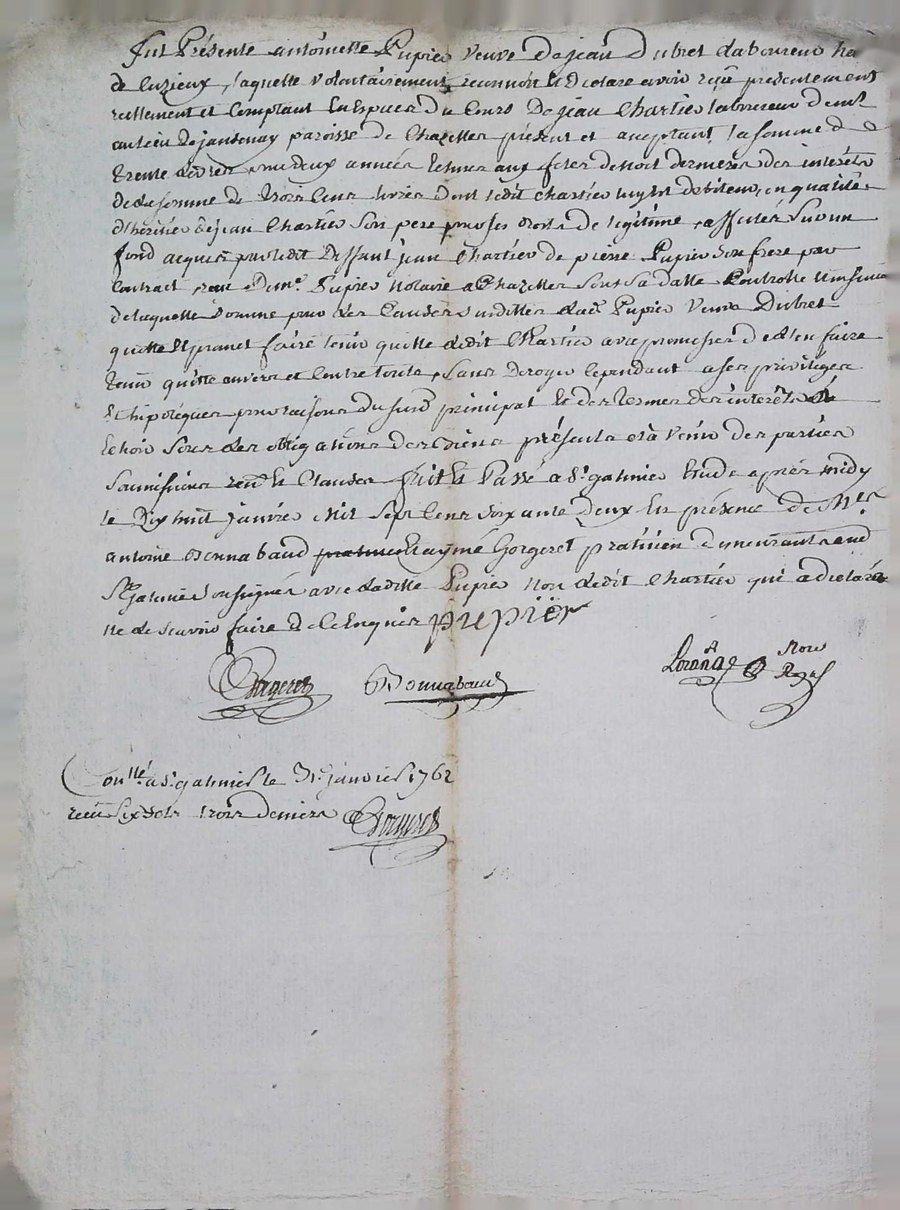 fut Présente antoinette Pupier veuve de jean Dubret laboureur ha
de Cuzieux, laquelle volontairement reconnoit et declare avoir reçu presentement
reellement et comptant en Espèces du Cours De jean Chartier laboureur dem.t
au lieu de jantenay paroisse de Chazelles présent et acceptant, la somme de
trente livres pour deux années echues aux fetes de noel dernieres des intérêts
de la somme de trois cens livres dont ledit Chartier luy est debiteur, en qualité
d'héritier de jean Chartier son pere pour ses droits de légitime affectés sur un
fond acquis par ledit Deffunt jean Chartier de pierre Pupier son frere par
Contract reçu De m.e Pupier Notaire a Chazelles sous sa datte Controllé
de laquelle somme pour les Causes susdittes lad.e Pupier veuve Dubret
quitte et promet faire tenir quitte ledit Chartier avec promesse de l'en faire
tenir quitte envers et contre touts, sans Deroger cependant a ses privilèges
et hipotèques pour raisons du surd principal et des termes des intérêts
echoir sous les obligations des biens présents et à venir des parties
soumissions ren.ons et Clauses fait et Passé a S.t galmier Etude après midy
le Dix huit janvier mil sept cens soixante deux En présence de M.rs
antoine Bonnabaud Et aymé Gorgeret pratitien demeurants aud
S.t galmier soussignés avec laditte Pupier non ledit Chartier qui a declaré
ne le scavoir faire de ce Enquis pupier
Gorgeret Bonnabaud
Con.llé a S.t galmier le 31.e janvier 1762
reçu six sols trois deniers Gorgeret